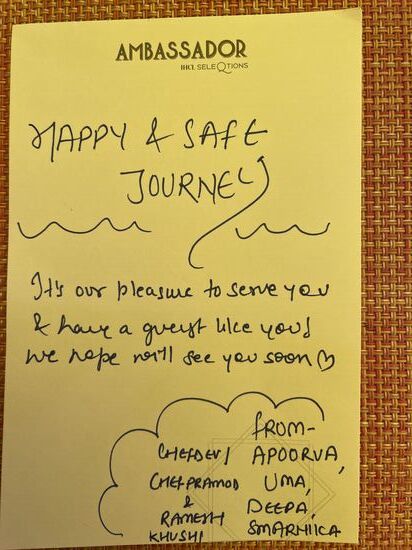 AMBASSADOR
IHCL SELEQTIONS
HAPPY & SAFE
JOURNEY
It's our pleasure to serve you
& have a guest like you!
we hope we'll see you soon
FROM-
CHEFDEVJ APOORVA,
CHEF PRAMOD UMA,
& DEEPA,
RAMESH SMARNIICA
KHUSHI